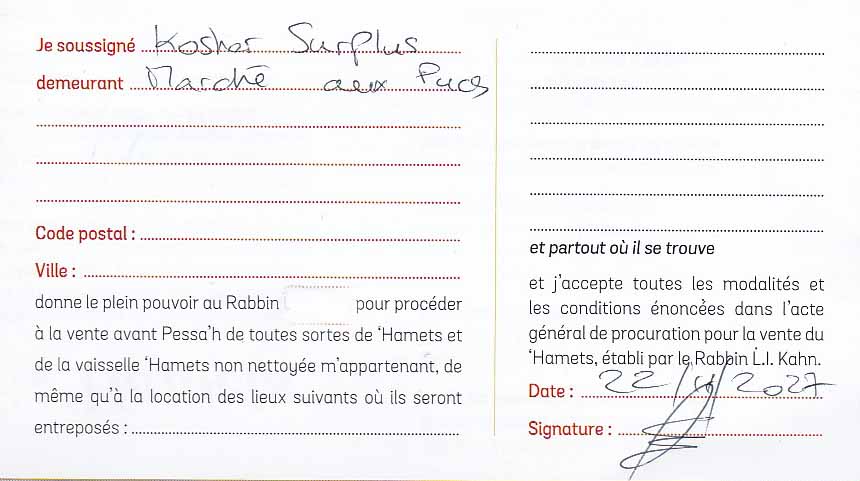 Je soussigné Kosher Surplus
demeurant Marché aux Puces
Code postal :
Ville :
donne le plein pouvoir au Rabbin pour procéder
à la vente avant Pessa'h de toutes sortes de 'Hamets et
de la vaisselle 'Hamets non nettoyée m'appartenant, de
même qu'à la location des lieux suivants où ils seront
entreposés :
et partout où il se trouve
et j'accepte toutes les modalités et
les conditions énoncées dans l'acte
général de procuration pour la vente du
'Hamets, établi par le Rabbin L.I. Kahn.
Date : 22/4/2027
Signature :